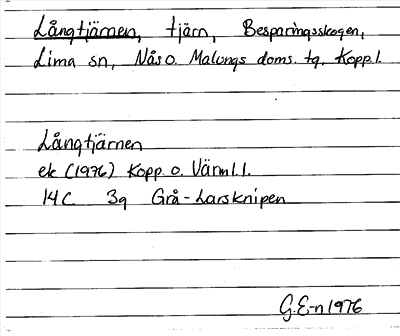 Långtjärnen, tjärn, Besparingsskogen,
Lima sn, Nås o. Malungs doms. tg, Kopp. l.
Långtjärnen
ek (1976) Kopp. o. Värml. l.
14 C 3g Grå-Larsknipen
G.E-n 1976